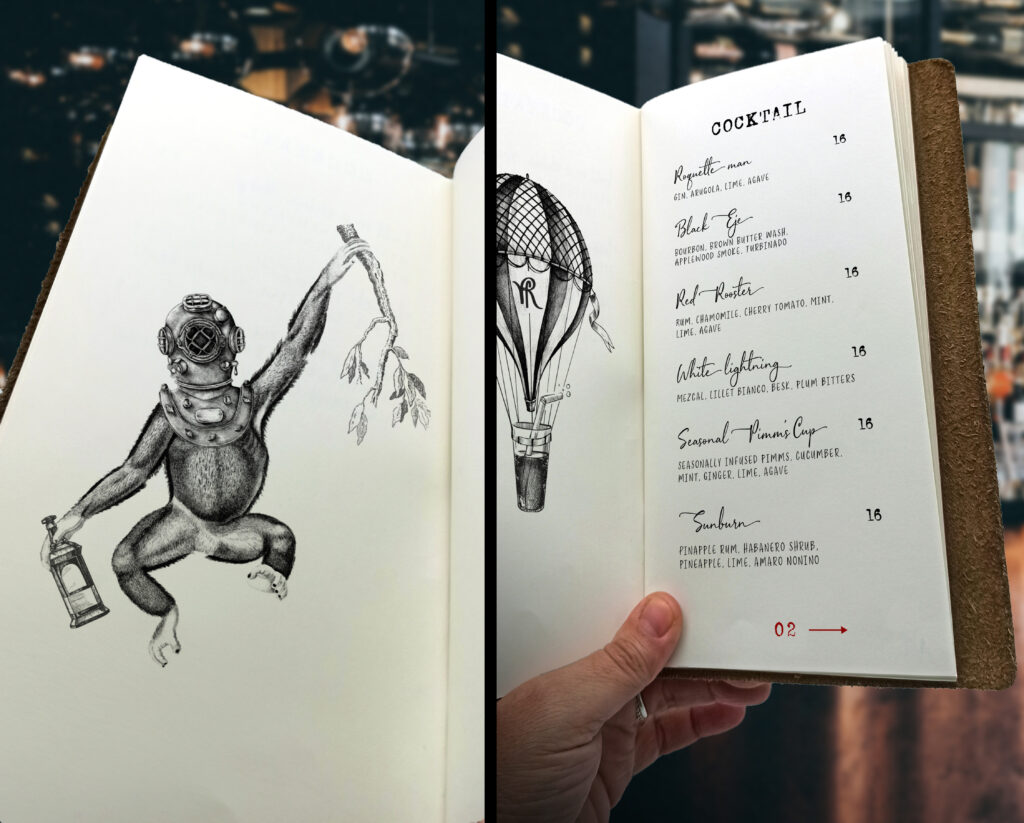 COCKTAIL
Roquette man
16
GIN, ARUGOLA, LIME, AGAVE
Black Eye
16
BOURBON, BROWN BUTTER WASH,
APPLEWOOD SMOKE, TURBINADO
Red Rooster
16
RUM, CHAMOMILE, CHERRY TOMATO, MINT,
LIME, AGAVE
White lightning
16
MEZCAL, LILLET BIANCO, BESK, PLUM BITTERS
Seasonal Pimm's Cup
16
SEASONALLY INFUSED PIMMS, CUCUMBER,
MINT, GINGER, LIME, AGAVE
Sunburn
16
PINAPPLE RUM, HABANERO SHRUB,
PINEAPPLE, LIME, AMARO NONINO
02